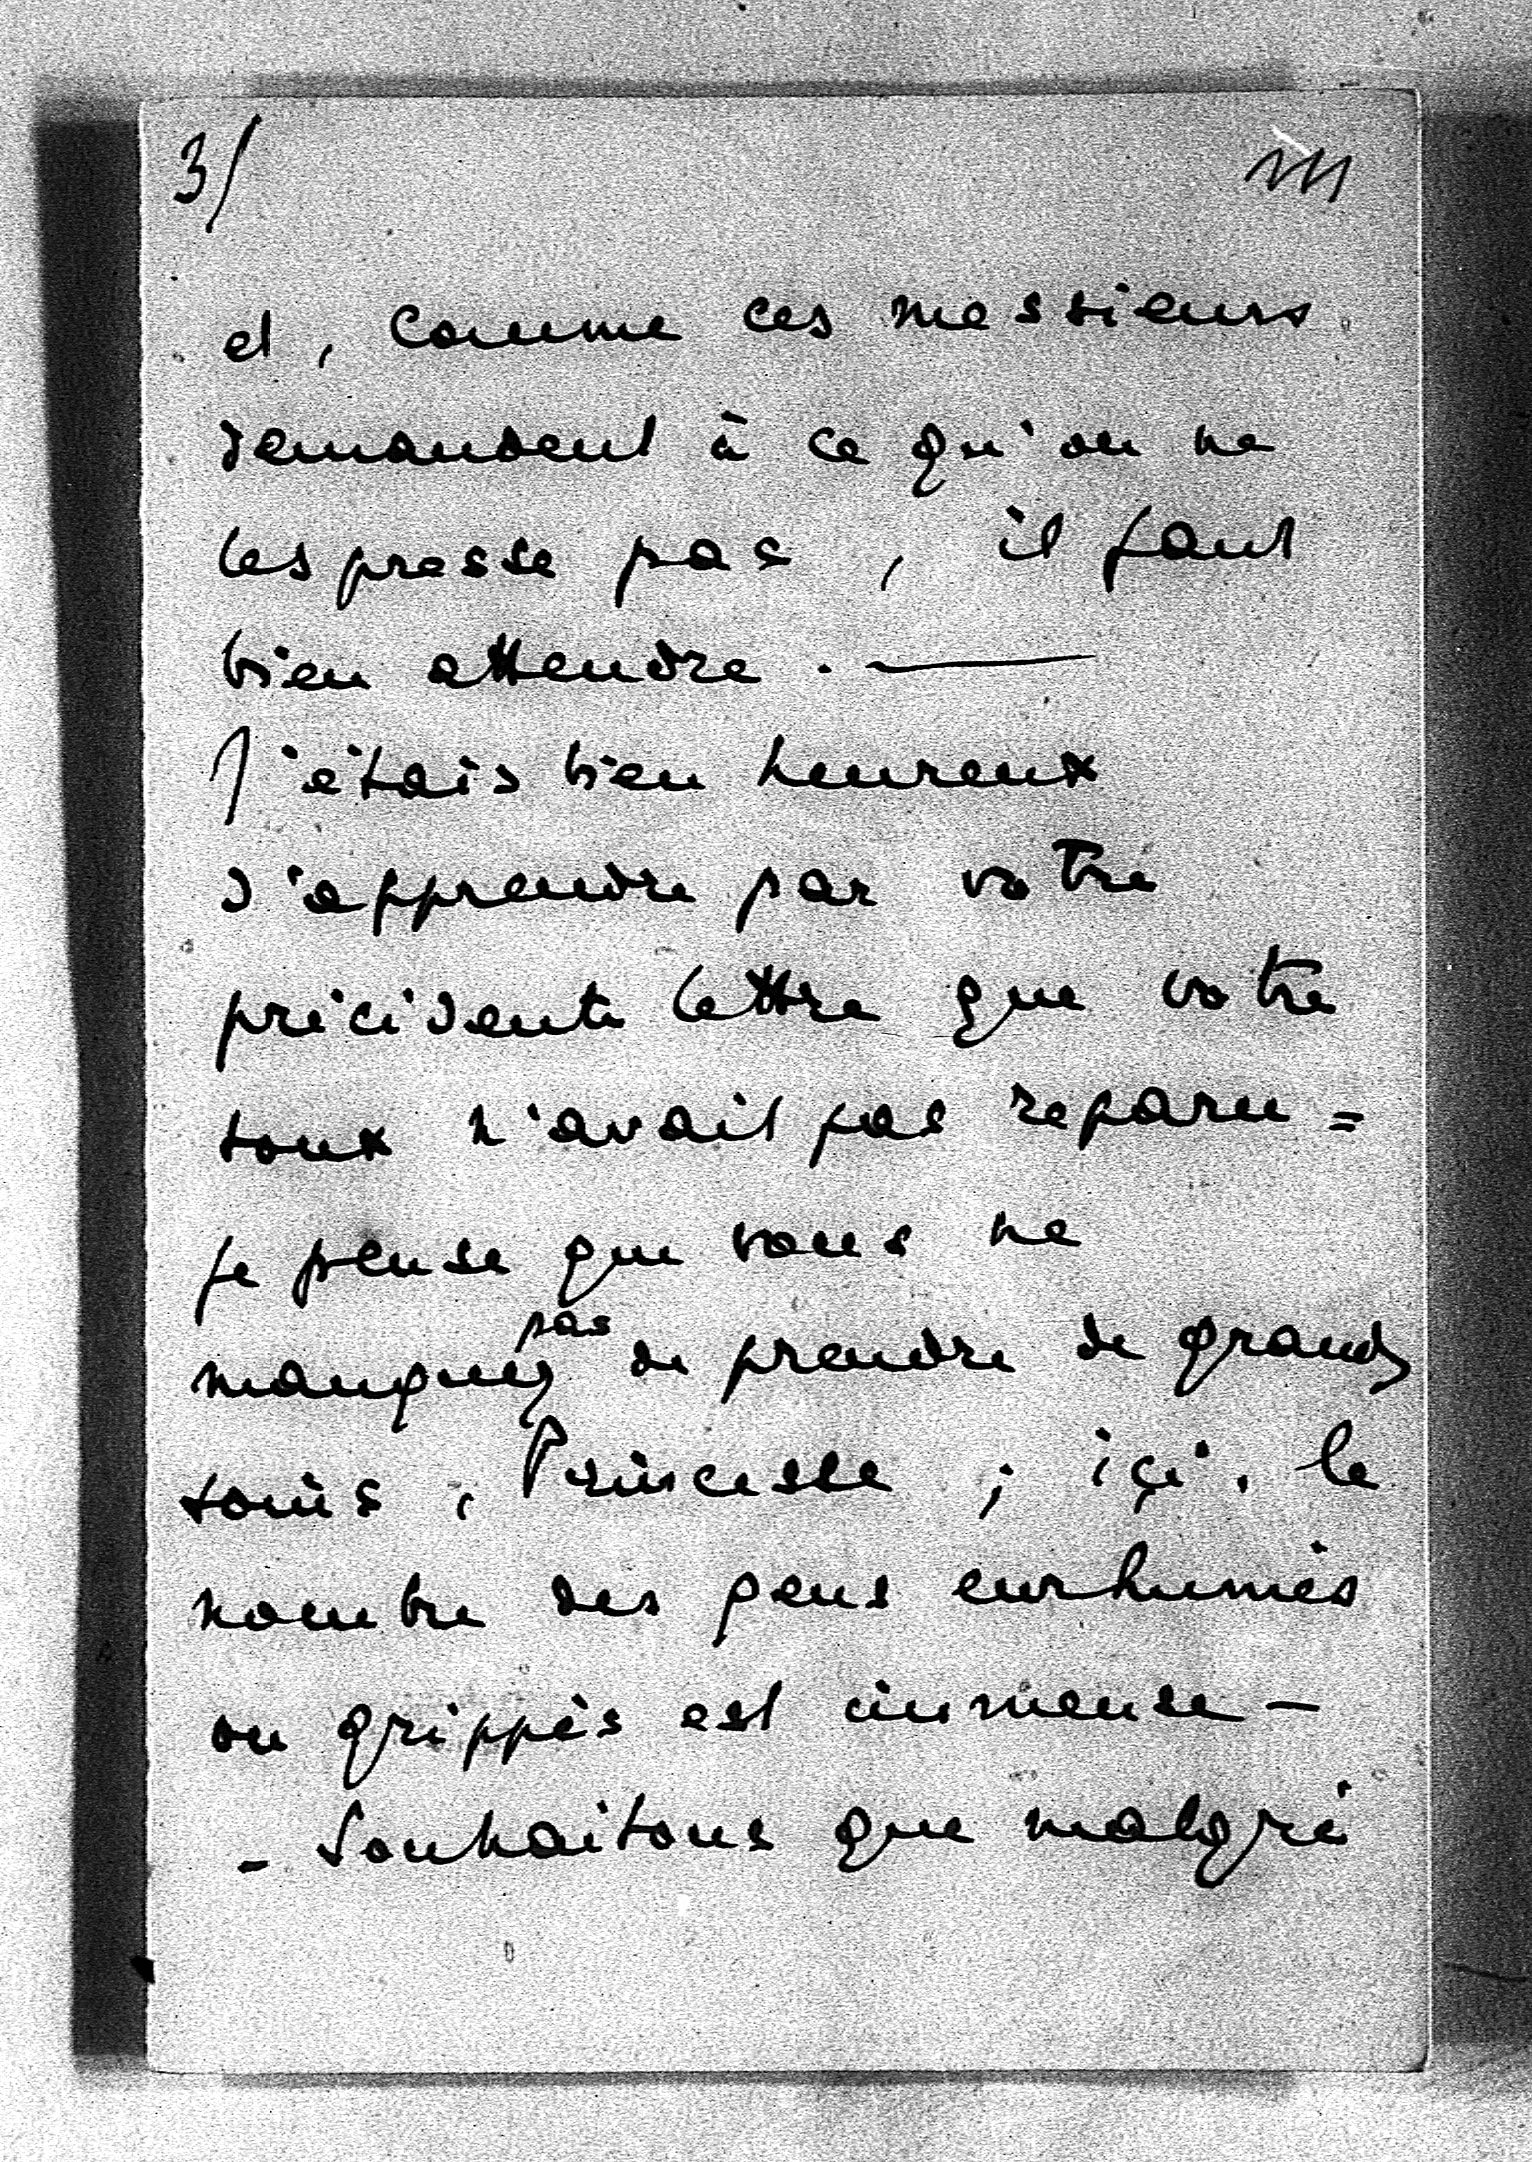 3/
et, comme ces messieurs
demandent à ce qu'on ne
les presse pas, il faut
bien attendre. —
J'étais bien heureux
d'apprendre par votre
précédente lettre que votre
toux n'avait pas reparu =
je pense que vous ne
manquez pas de prendre de grands
soins, Princesse ; içi, le
nombre des gens enrhumés
ou grippés est immense —
- Souhaitons que malgré